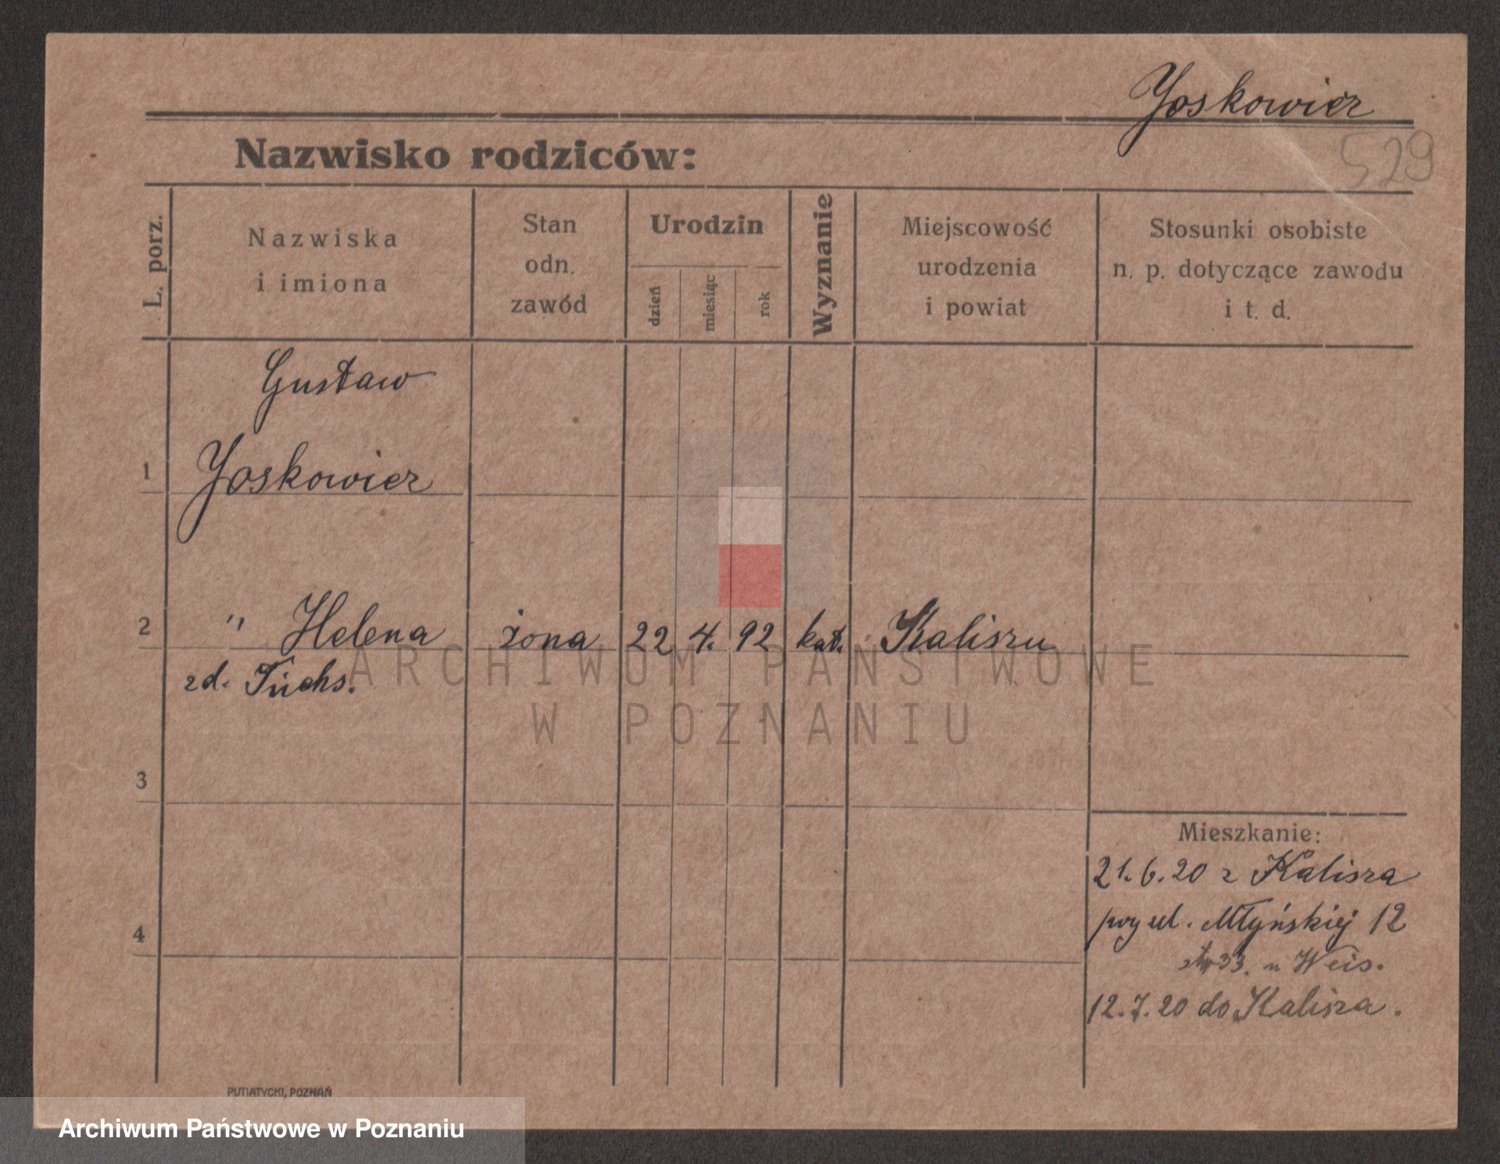 Yoskowicz
529
Nazwisko rodziców:
L. porz.
Nazwiska
i imiona
Stan
odn.
zawód
Urodzin
dzień
miesiąc
rok
Wyznanie
Miejscowość
urodzenia
i powiat
Stosunki osobiste
n. p. dotyczące zawodu
i t. d.
Gustaw
1 Yoskowicz
2 " Helena żona 22 4. 92 kat. Kaliszu
zd. Fuchs.
ARCHIWUM PAŃSTWOWE
W POZNANIU
3
Mieszkanie:
21.6.20 z Kalisza
przy ul. Młyńskiej 12
4
33. u Weis.
12.7.20 do Kalisza.
PUTIATYCKI, POZNAŃ
Archiwum Państwowe w Poznaniu